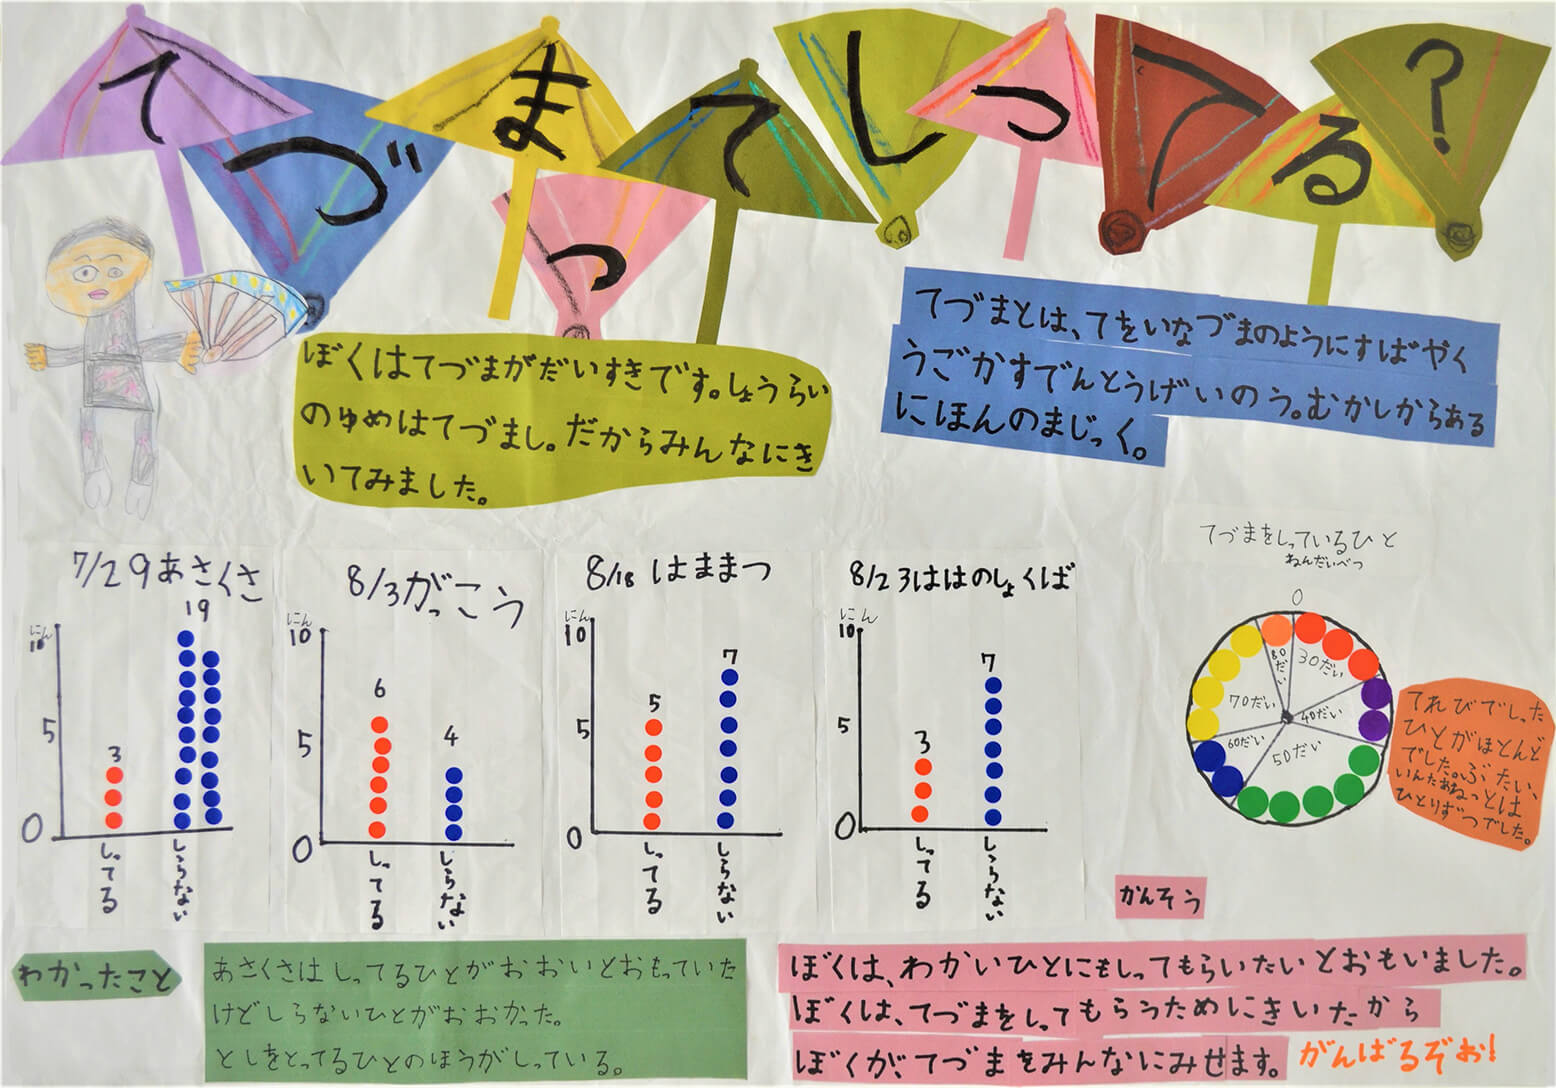 てづまってしってる?
ぼくはてづまがだいすきです。しょうらい
のゆめはてづまし。だからみんなにき
いてみました。
てづまとは、てをいなづまのようにすばやく
うごかすでんとうげいのう。むかしからある
にほんのまじっく。
7/29あさくさ
にん
10
5
0
3
19
しってる
しらない
8/3がっこう
にん
10
5
0
6
4
しってる
しらない
8/18はままつ
にん
10
5
0
5
7
しってる
しらない
8/23ははのしょくば
にん
10
5
0
3
7
しってる
しらない
てづまをしっているひと
ねんだいべつ
0
30だい
40だい
50だい
60だい
70だい
80だい
てれびでしった
ひとがほとんど
でした。ぶたい、
いんたあねっとは
ひとりずつでした。
わかったこと
あさくさはしってるひとがおおいとおもっていた
けどしらないひとがおおかった。
としをとってるひとのほうがしっている。
かんそう
ぼくは、わかいひとにもしってもらいたいとおもいました。
ぼくは、てづまをしってもらうためにきいたから
ぼくが、てづまをみんなにみせます。がんばるぞお!